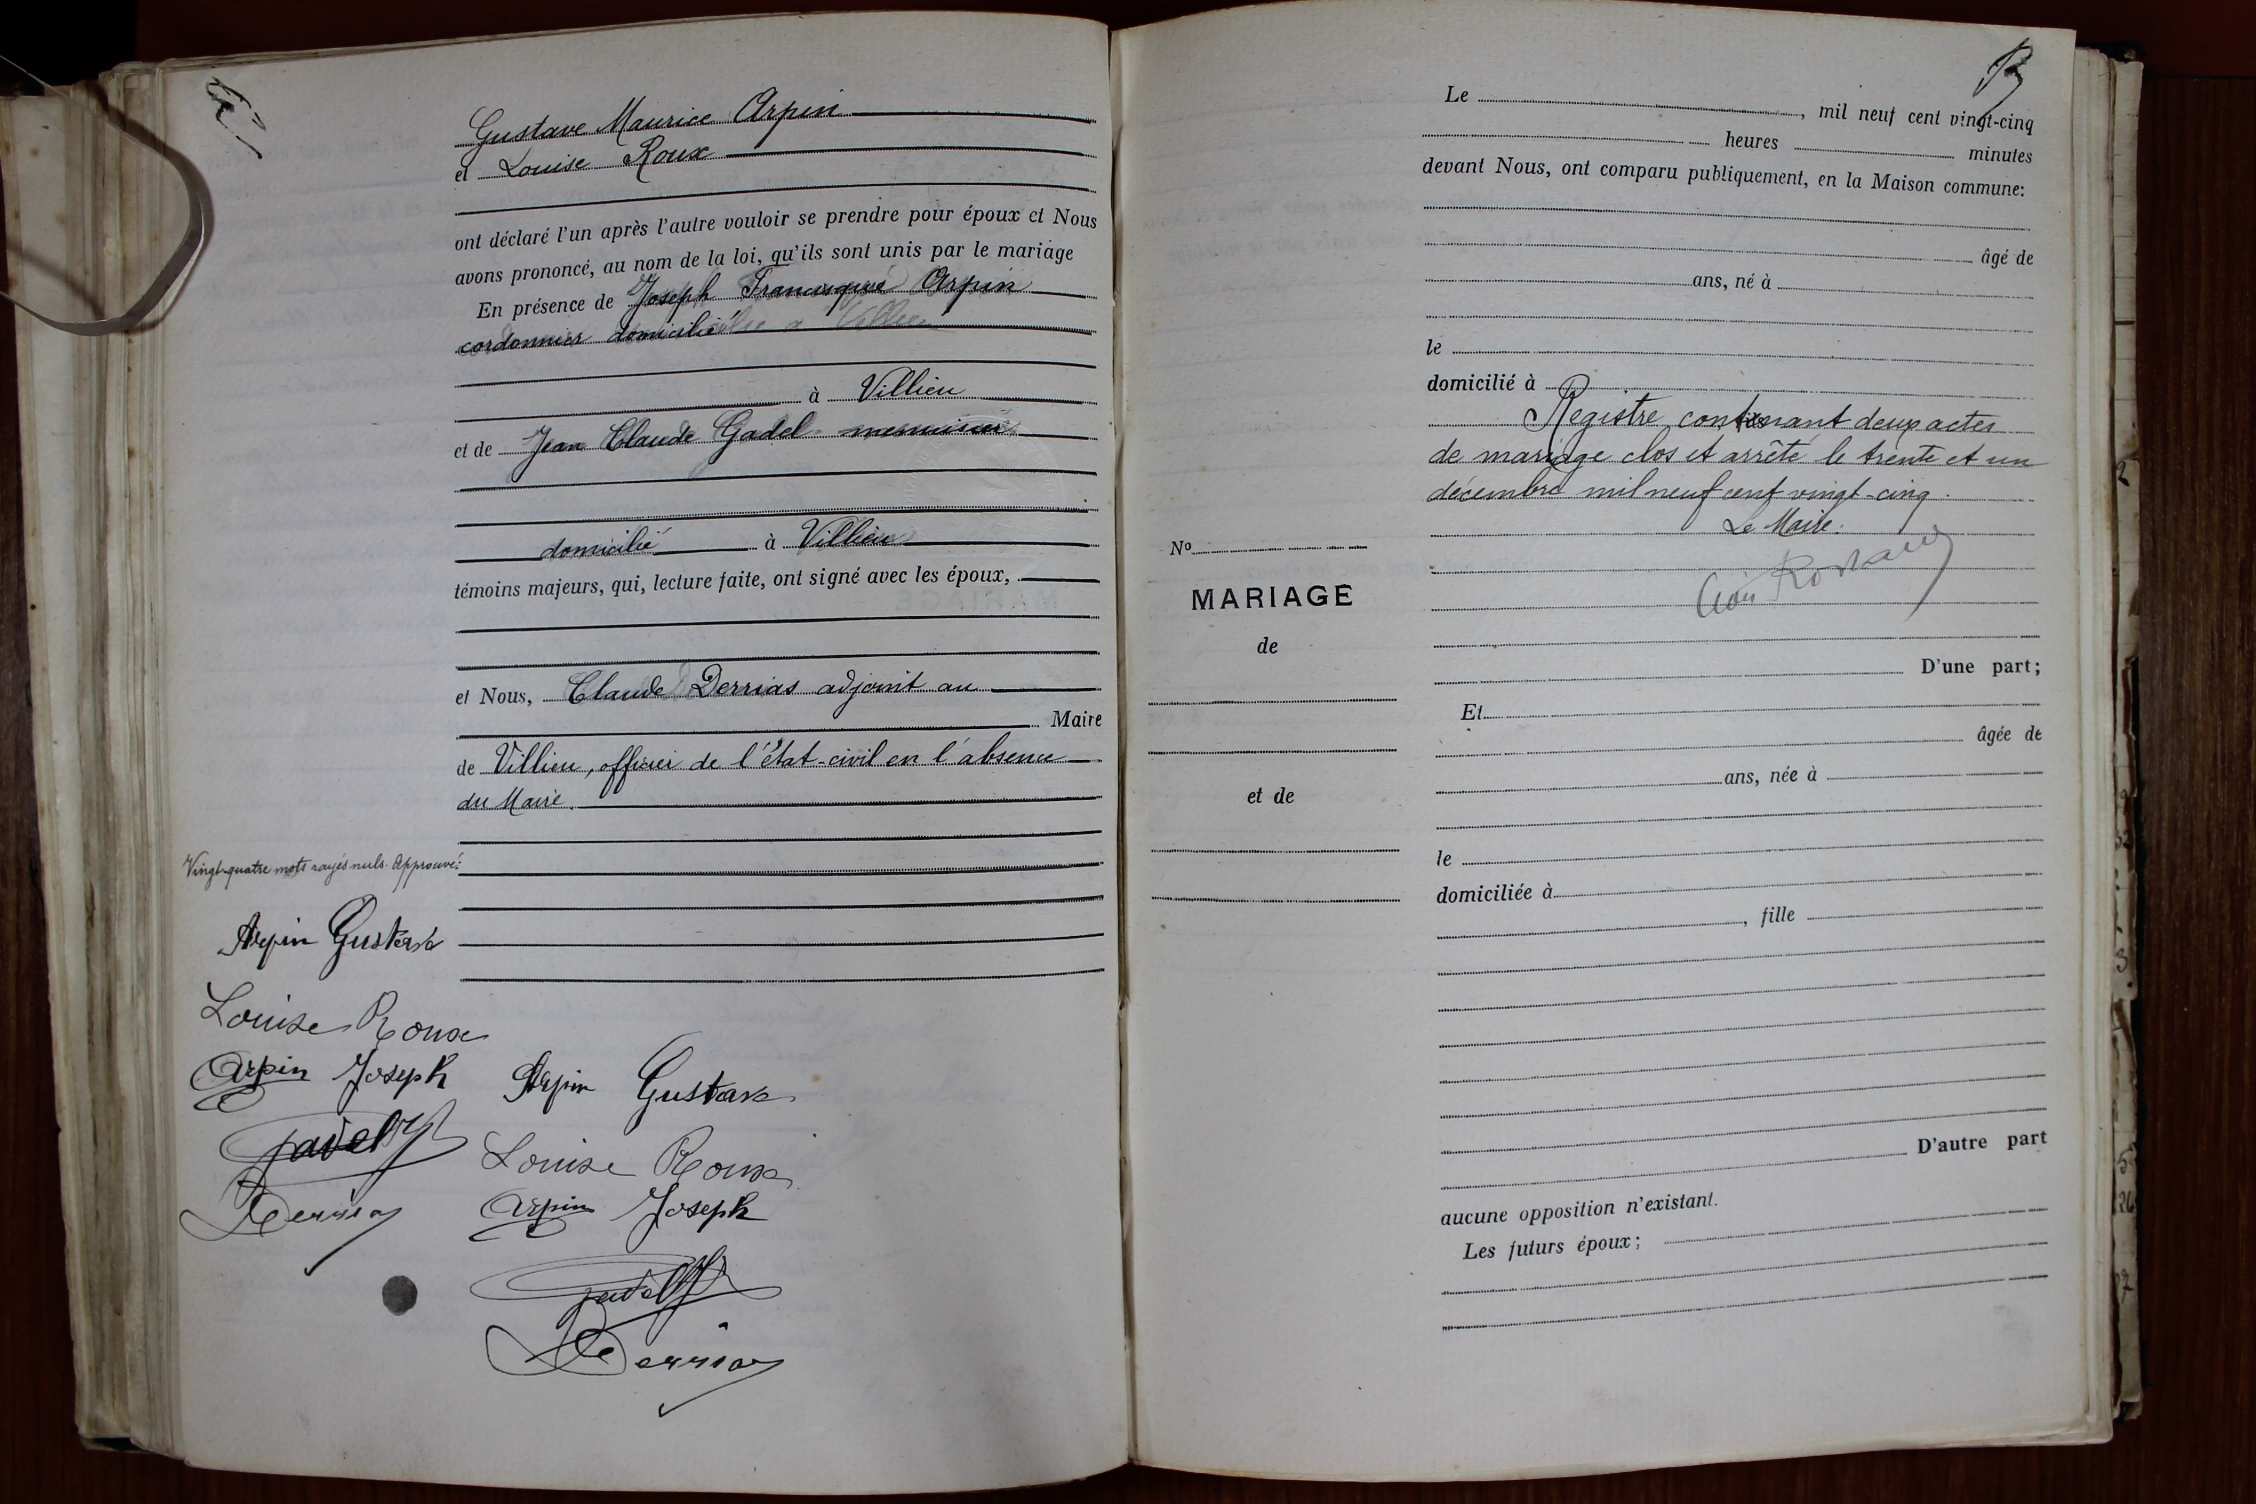 Gustave Maurice Arpin
et Louise Roux
ont déclaré l'un après l'autre vouloir se prendre pour époux et Nous
avons prononcé, au nom de la loi, qu'ils sont unis par le mariage
En présence de Joseph Francisque Arpin
cordonnier domicilié
à Villieu
et de Jean Claude Gadel menuisier
domicilié à Villieu
témoins majeurs, qui, lecture faite, ont signé avec les époux,
et Nous, Claude Derrias adjoint au
Maire
de Villieu, officier de l'état-civil en l'absence
du Maire.
Vingt-quatre mots rayés nuls. Approuvé:
Arpin Gustave
Louise Roux
Arpin Joseph
Gadel
Derrias
Arpin Gustave
Louise Roux
Arpin Joseph
Gadel
Derrias
Le , mil neuf cent vingt-cinq
heures minutes
devant Nous, ont comparu publiquement, en la Maison commune:
âgé de
ans, né à
le
domicilié à
Registre contenant deux actes
de mariage clos et arrêté le trente et un
décembre mil neuf cent vingt-cinq.
Le Maire:
No
MARIAGE
de
et de
D'une part;
Et
âgée de
ans, née à
le
domiciliée à
, fille
D'autre part
aucune opposition n'existant.
Les futurs époux;